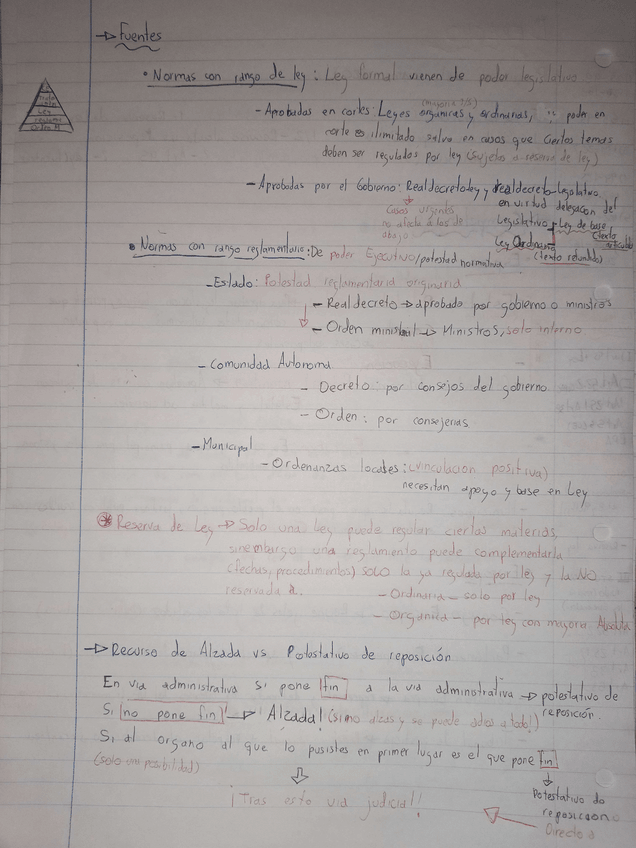 → Fuentes
• Normas con rango de ley: Ley formal vienen de poder legislativo
(mayoria 1/2)
- Aprobadas en cortes: Leyes organicas y ordinarias, poder en
corte es ilimitado salvo en casos que ciertos temas
deben ser regulados por ley (sujeto a reserva de ley)
- Aprobadas por el Gobierno: Real decreto ley y real decreto-legislativo
Casos urgentes
no afecte a los de
abajo
en virtud delegación del
Legislativo Ley de base
(texto articulado
Ley Ordinaria
(texto refundido)
• Normas con rango reglamentario: De poder Ejecutivo/potestad normativa
- Estado: Potestad reglamentaria originaria
- Real decreto → aprobado por gobierno o ministros
- Orden → Ministros, solo interno
- Comunidad Autonoma
- Decreto: por consejos del gobierno
- Orden: por consejerias
- Municipal
- Ordenanzas locales: (vinculación positiva)
necesitan apoyo y base en Ley
Reserva de Ley → Solo una Ley puede regular ciertas materias,
sinembargo una reglamento puede complementarla
(fechas, procedimientos) SOLO la ya regulada por ley y la NO
reservada
- Ordinaria - solo por ley
- Organica - por ley con mayoria Absoluta
→ Recurso de Alzada vs Potestativo de reposición
En via administrativa Si pone fin a la via administrativa → potestativo de
reposición.
Si no pone fin → Alzada! (si no alzas y se puede adios a todo!)
Si al organo al que lo pusistes en primer lugar es el que pone fin
(solo un posibilidad)
Potestativo de
reposicion
¡Tras esto via judicial!
Directo a